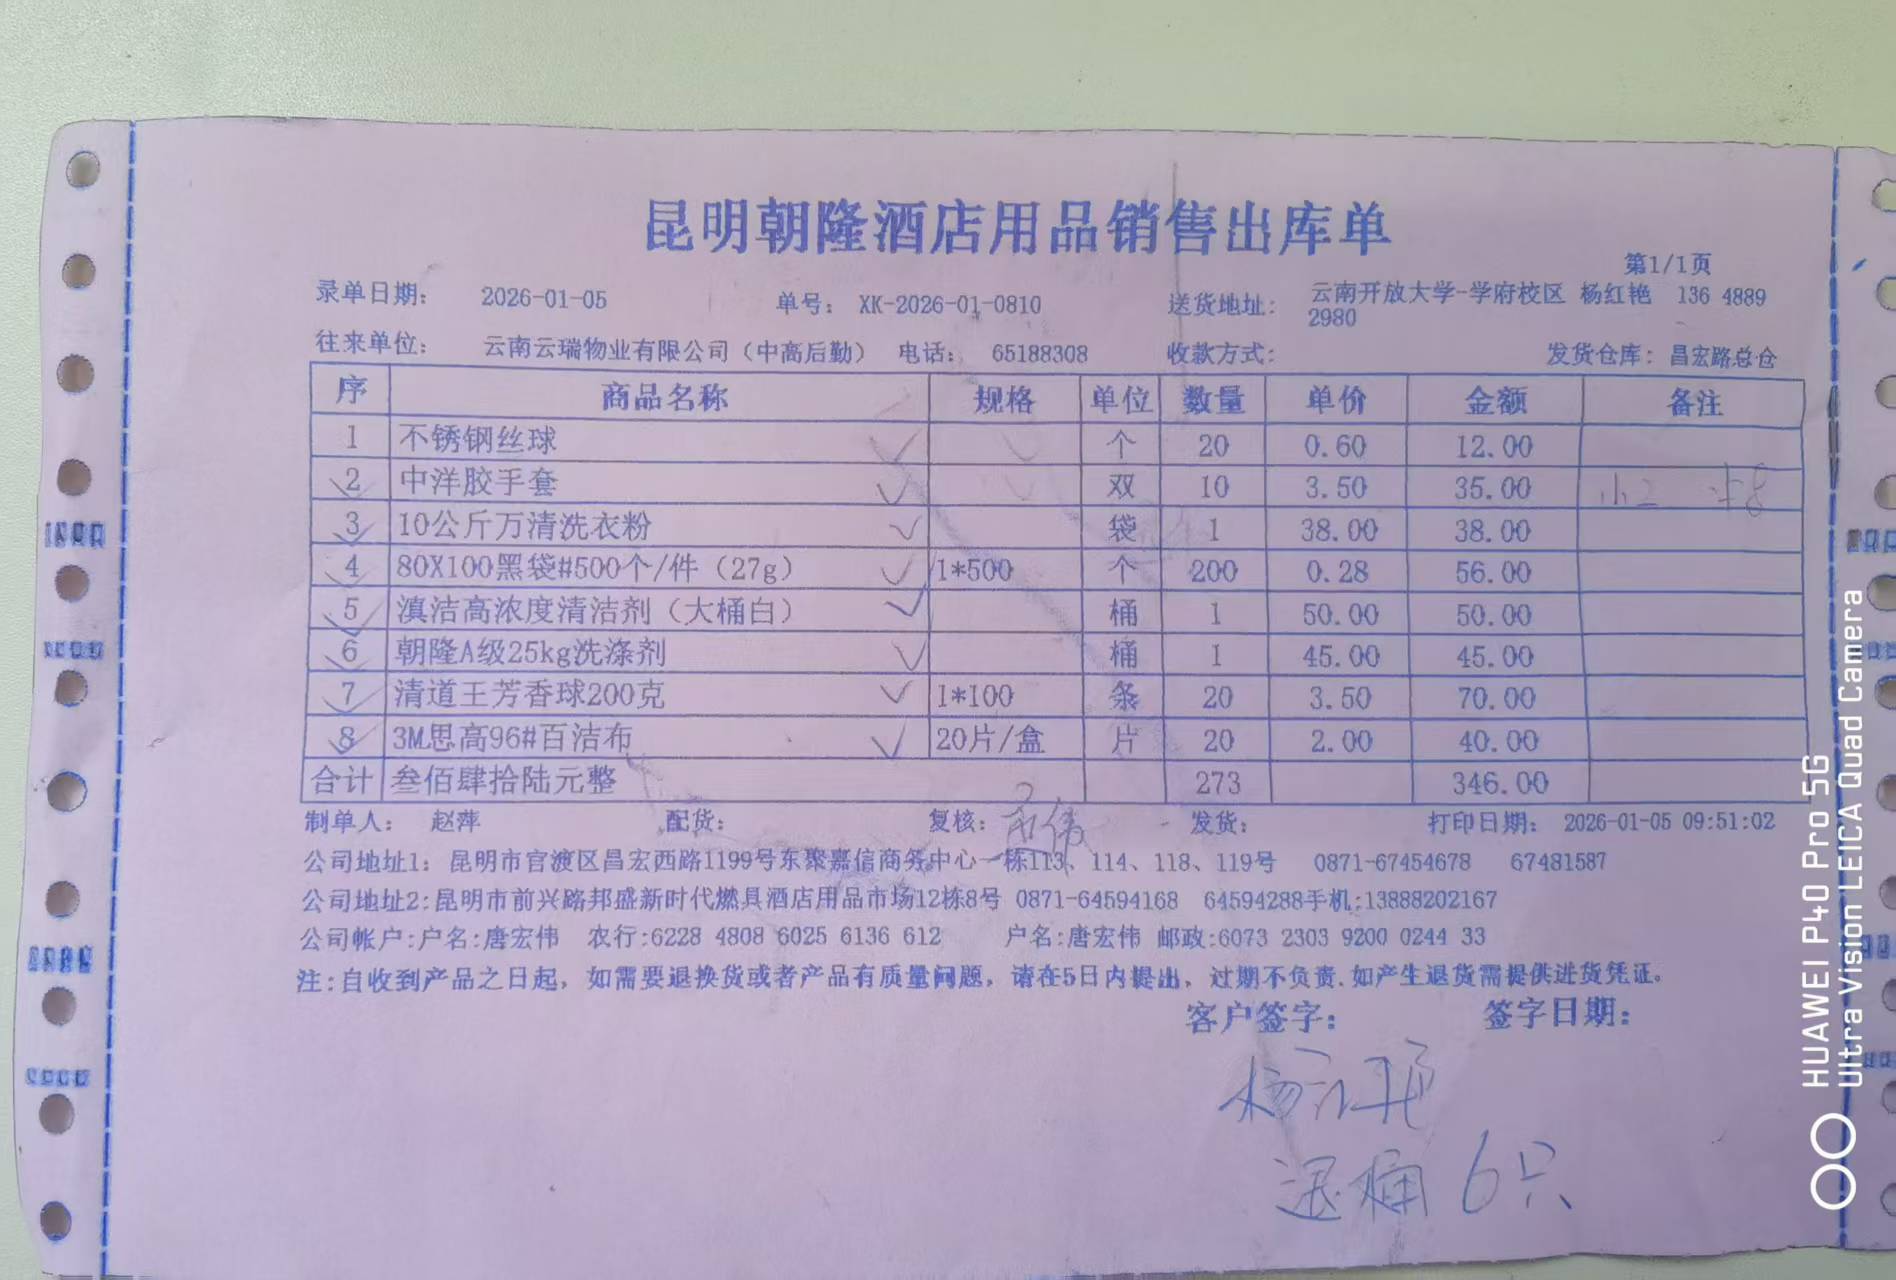 昆明朝隆酒店用品销售出库单
第1/1页
录单日期： 2026-01-05 单号： XK-2026-01-0810 送货地址： 云南开放大学-学府校区 杨红艳 136 4889 2980
往来单位： 云南云瑞物业有限公司（中高后勤） 电话： 65188308 收款方式： 发货仓库： 昌宏路总仓
序 商品名称 规格 单位 数量 单价 金额 备注
1 不锈钢丝球 个 20 0.60 12.00
2 中洋胶手套 双 10 3.50 35.00 小2 中8
3 10公斤万清洗衣粉 袋 1 38.00 38.00
4 80X100黑袋#500个/件（27g） 1*500 个 200 0.28 56.00
5 滇洁高浓度清洁剂（大桶白） 桶 1 50.00 50.00
6 朝隆A级25kg洗涤剂 桶 1 45.00 45.00
7 清道王芳香球200克 1*100 条 20 3.50 70.00
8 3M思高96#百洁布 20片/盒 片 20 2.00 40.00
合计 叁佰肆拾陆元整 273 346.00
制单人： 赵萍 配货： 复核： 发货： 打印日期： 2026-01-05 09:51:02
公司地址1： 昆明市官渡区昌宏西路1199号东聚嘉信商务中心一栋113、114、118、119号 0871-67454678 67481587
公司地址2:昆明市前兴路邦盛新时代燃具酒店用品市场12栋8号 0871-64594168 64594288手机:13888202167
公司帐户:户名:唐宏伟 农行:6228 4808 6025 6136 612 户名:唐宏伟 邮政:6073 2303 9200 0244 33
注:自收到产品之日起，如需要退换货或者产品有质量问题，请在5日内提出，过期不负责.如产生退货需提供进货凭证。
客户签字： 签字日期：
杨红艳
退桶6只
HUAWEI P40 Pro 5G
Ultra Vision LEICA Quad Camera